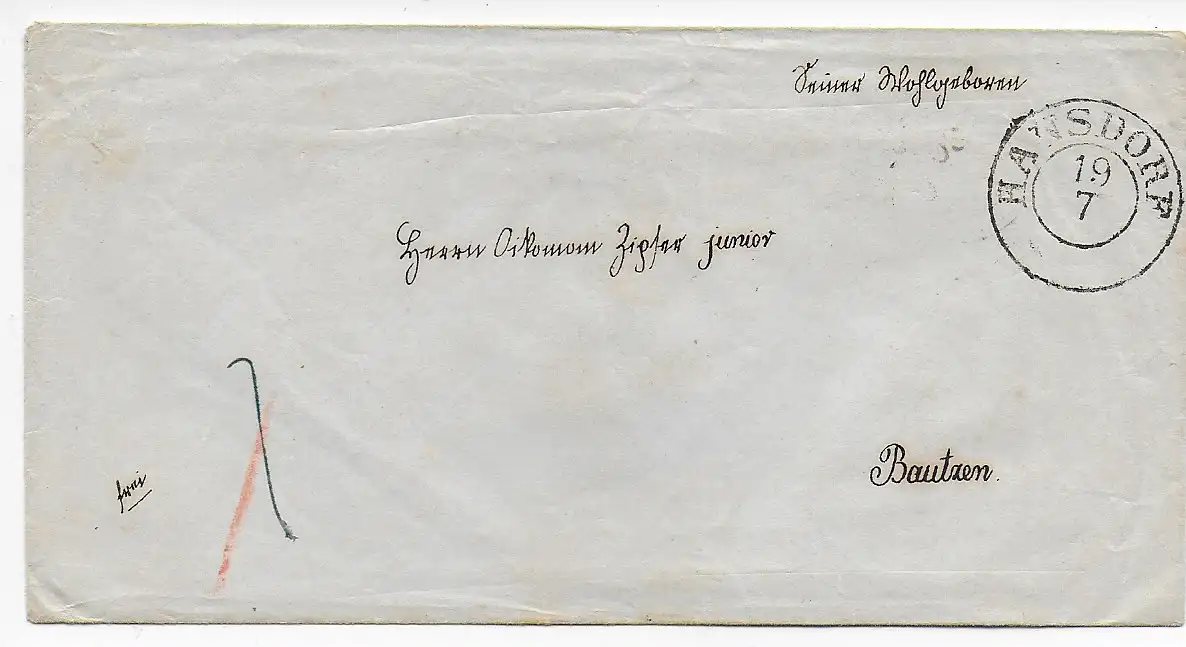 Seiner Wohlgeboren
HANSDORF
19
7
Herrn Oikonom Zipser junior
frei
Bautzen.